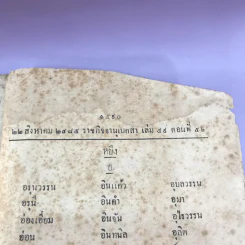 ๑๕๙๐
๒๒ สิงหาคม ๒๔๘๕ ราชกิจจานุเบกสา เล่ม ๕๙ ตอนที่ ๕๖
หญิง
อ
อรุนวรรน อินแก้ว อุบลวรรน
อรุน อินคำ อุมา
อ่องเอี่ยม อินจุ้น อุไรวรรน
อ่อน อินทนิล อุกิต